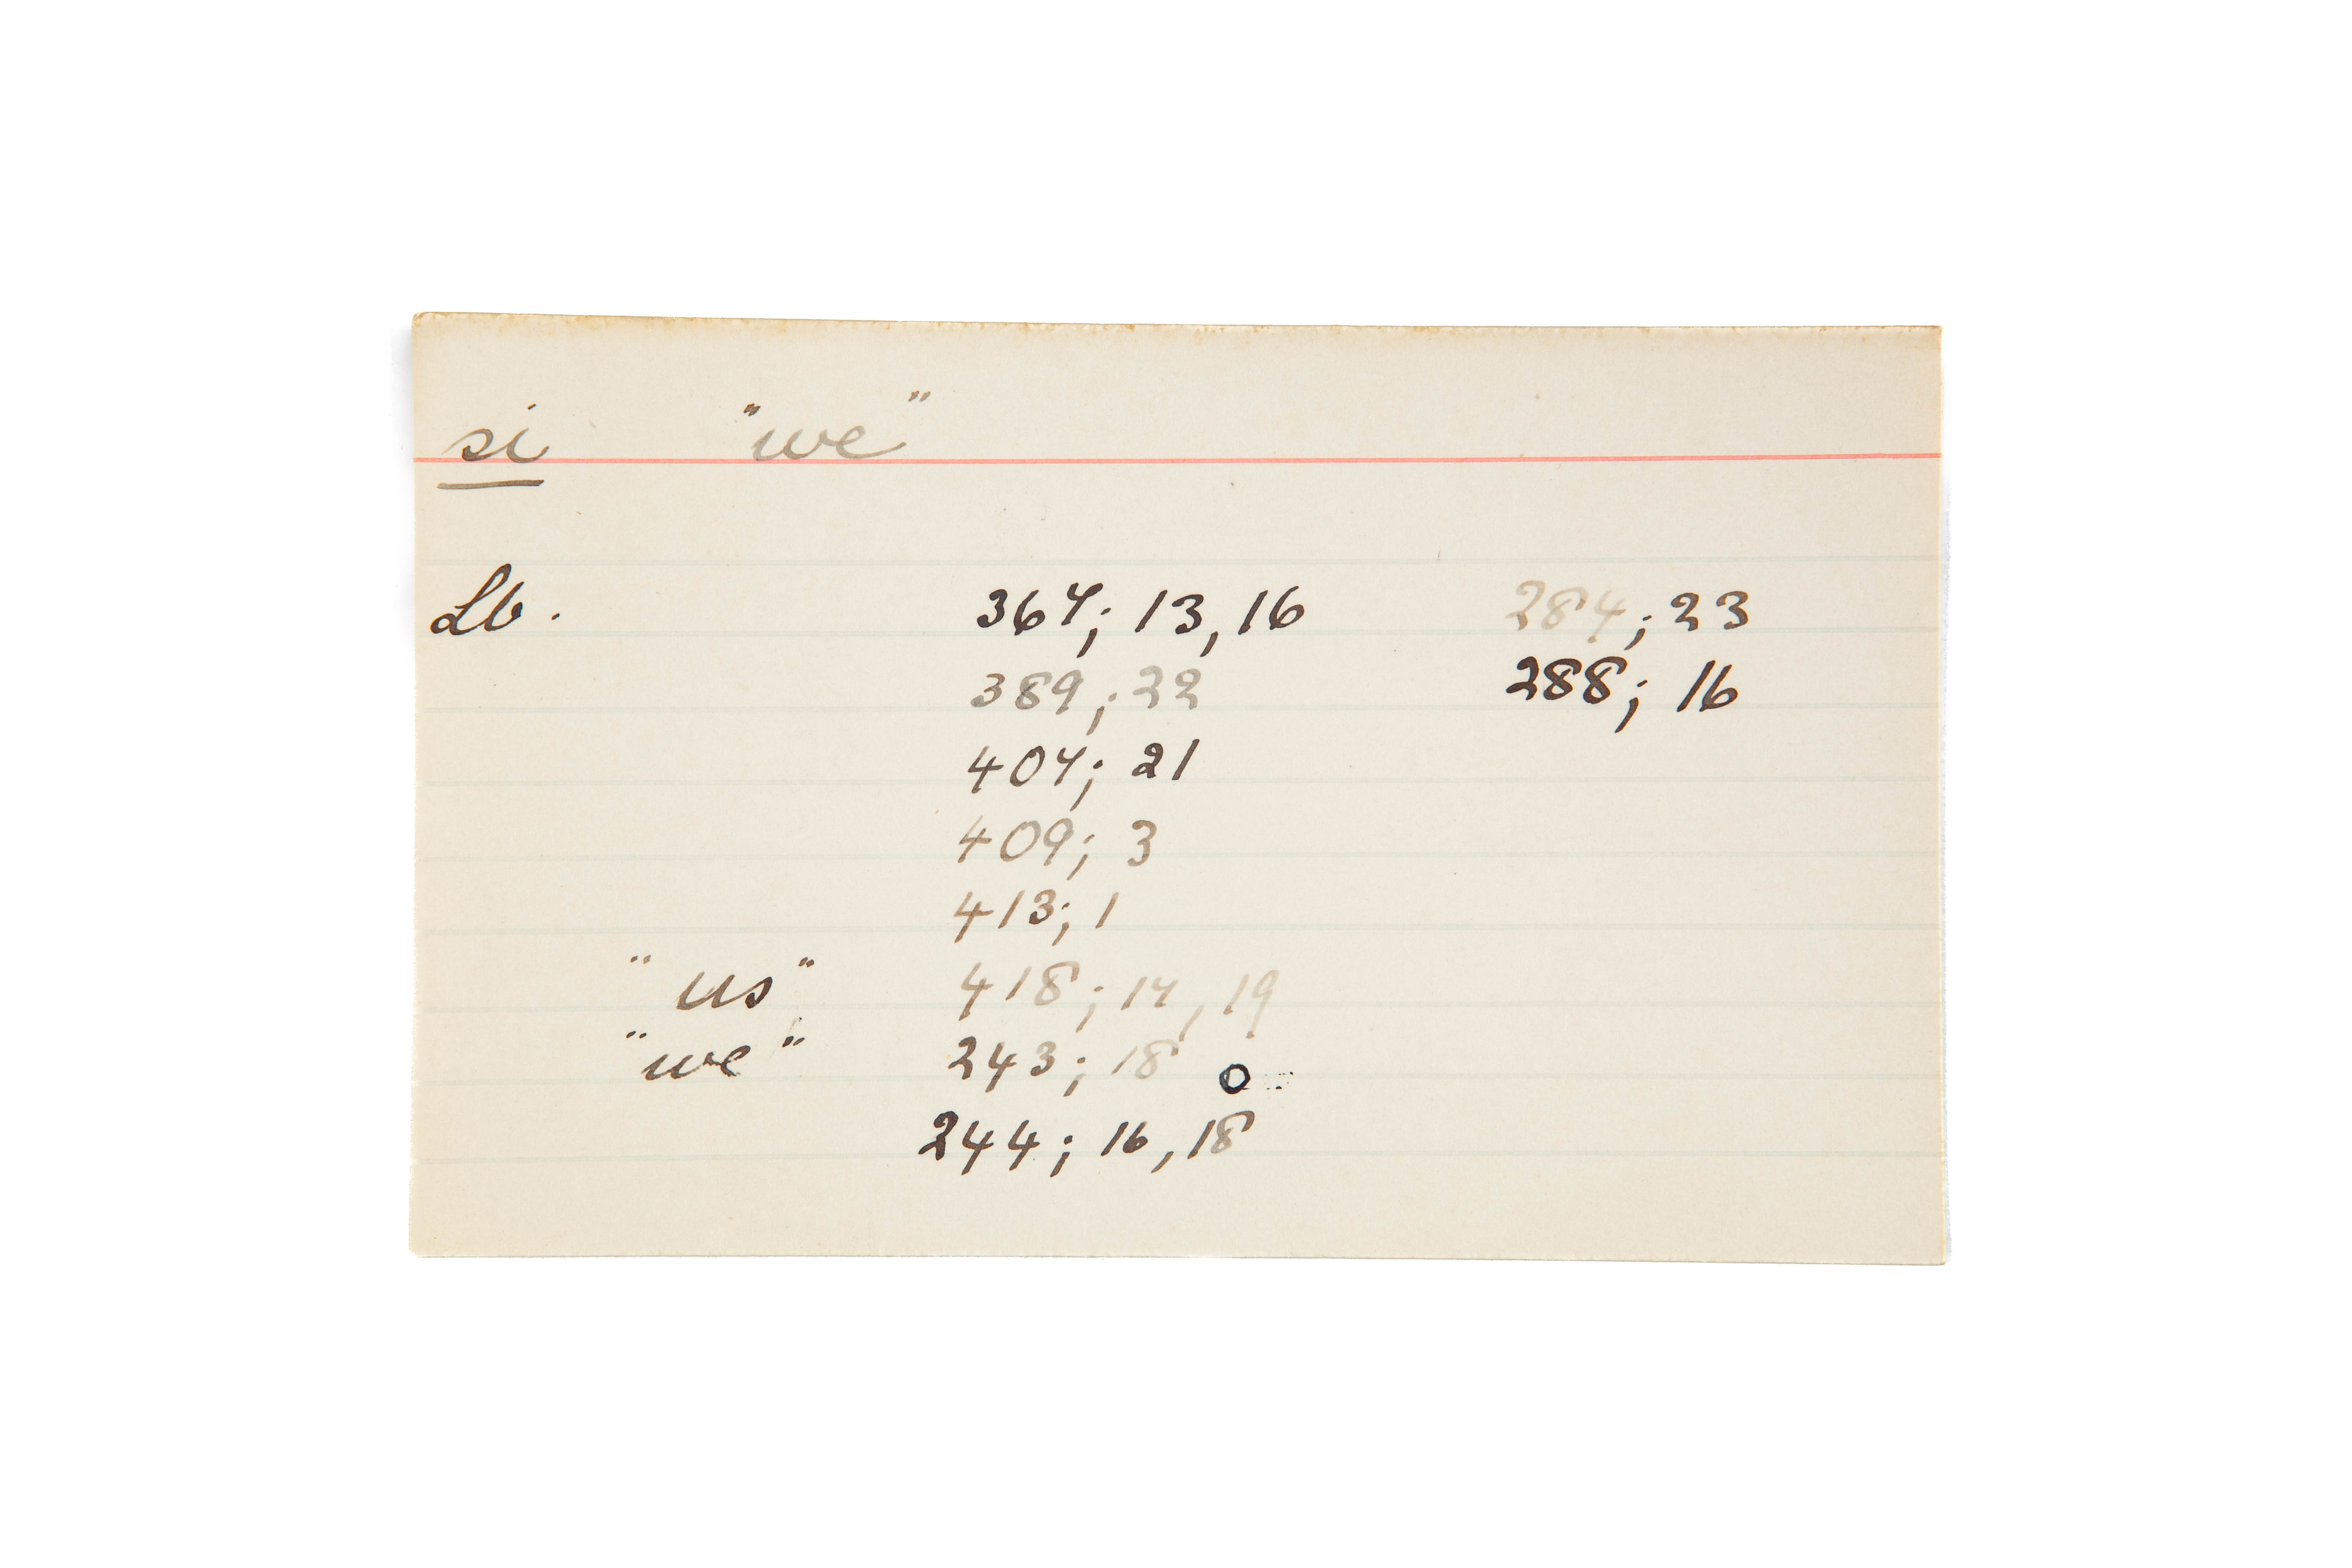 si "we"
Lb. 367; 13, 16 284; 23
389; 22 288; 16
407; 21
409; 3
413; 1
"us" 418; 17, 19
"we" 243; 18 o
244; 16, 18